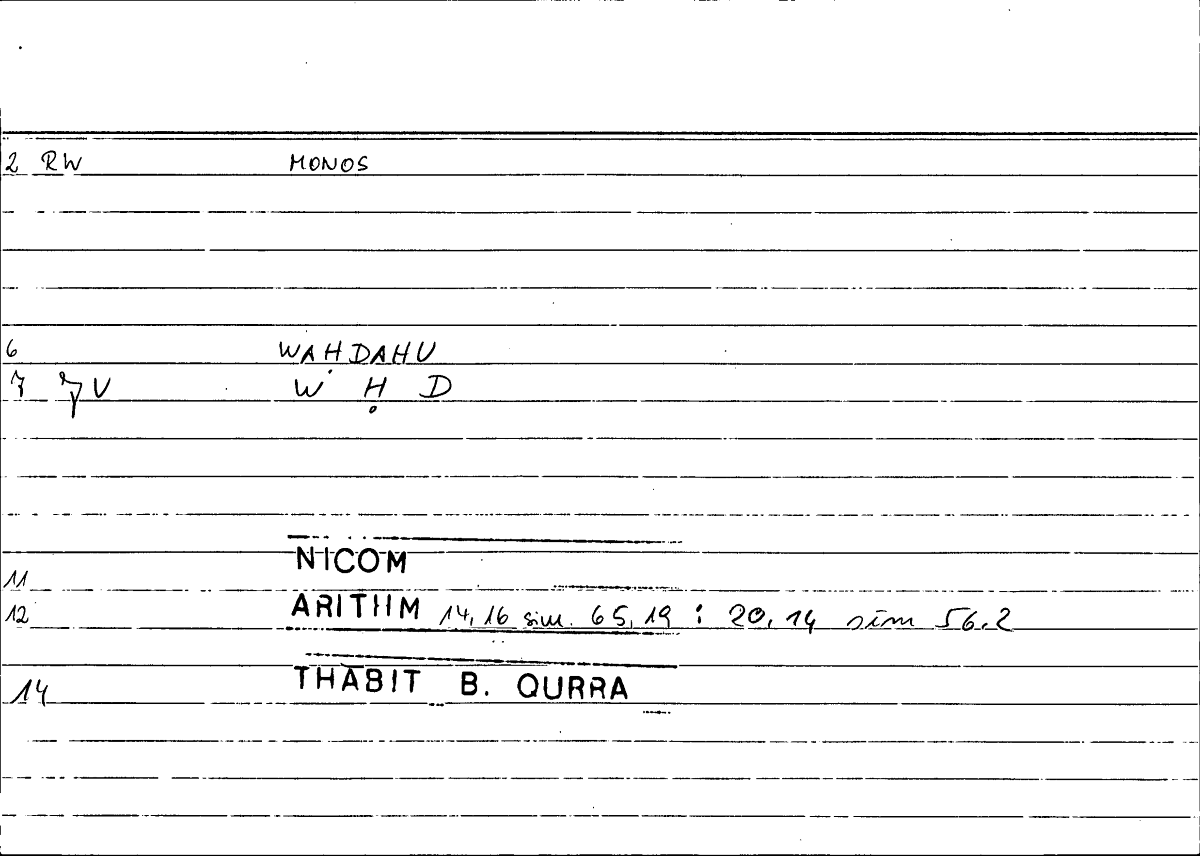 2 RW MONOS
6 WAHDAHU
7 V W Ḥ D
11 NICOM
12 ARITHM 14,16 sim. 65,19 : 20,14 sim 56.2
14 THABIT B. QURRA